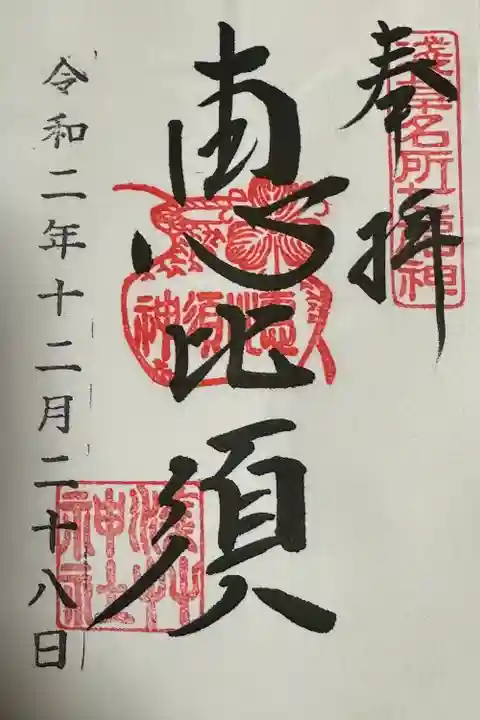 奉拝
浅草名所七福神
恵比須
恵比須神
浅草神社
令和二年十二月二十八日